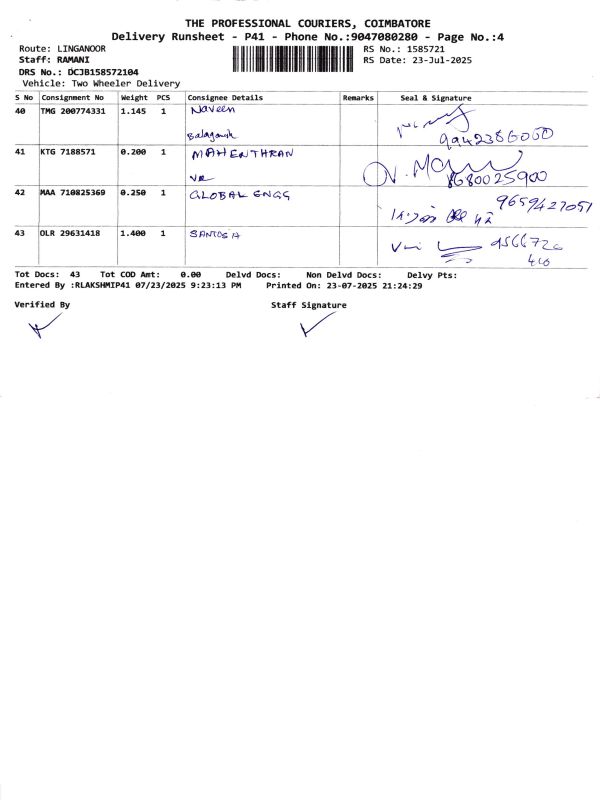 THE PROFESSIONAL COURIERS, COIMBATORE
Delivery Runsheet - P41 - Phone No.:9047080280 - Page No.:4
Route: LINGANOOR RS No.: 1585721
Staff: RAMANI RS Date: 23-Jul-2025
DRS No.: DCJB158572104
Vehicle: Two Wheeler Delivery
S No Consignment No Weight PCS Consignee Details Remarks Seal & Signature
40 TMG 200774331 1.145 1 Naveen
9942386050
41 KTG 7188571 0.200 1 MAHENTHRAN 8680025900
VR
42 MAA 710825369 0.250 1 GLOBAL ENGG 9659427051
43 OLR 29631418 1.400 1 9566726
410
Tot Docs: 43 Tot COD Amt: 0.00 Delvd Docs: Non Delvd Docs: Delvy Pts:
Entered By :RLAKSHMIP41 07/23/2025 9:23:13 PM Printed On: 23-07-2025 21:24:29
Verified By Staff Signature